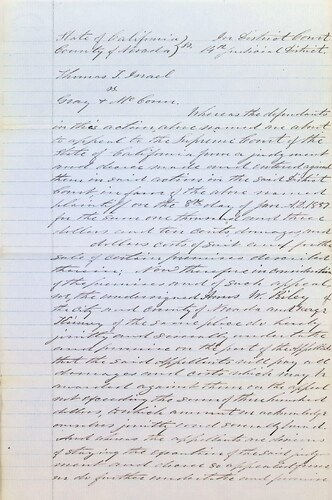 State of California } In District Court
County of Nevada } ss. 14th Judicial District.
Thomas T. Israel
vs
Gray & McCown.
Whereas the defendants
in this action above named are about
to appeal to the Supreme Court of the
State of California from a judgment
and decree made and entered against
them in said action in the said District
Court in favor of the above named
plaintiff on the 8th day of Jan. A.D. 1857
for the sum one thousand and three
dollars and ten cents damages and
dollars costs of suit and for the
sale of certain premises described
therein; Now therefore in consideration
of the premises and of such appeal
we, the undersigned W. Riley
the City and County of Nevada and
Kinney of the same place do hereby
jointly and severally undertake
and promise on the part of the appellants
that the said appellants will pay all
damages and costs which may be
awarded against them on the appeal
not exceeding the sum of three hundred
dollars, to which amount we acknowledge
ourselves jointly and severally bound.
And whereas the appellants are desirous
of staying the execution of the said judg
ment and decree so appealed from
we do further undertake and promise